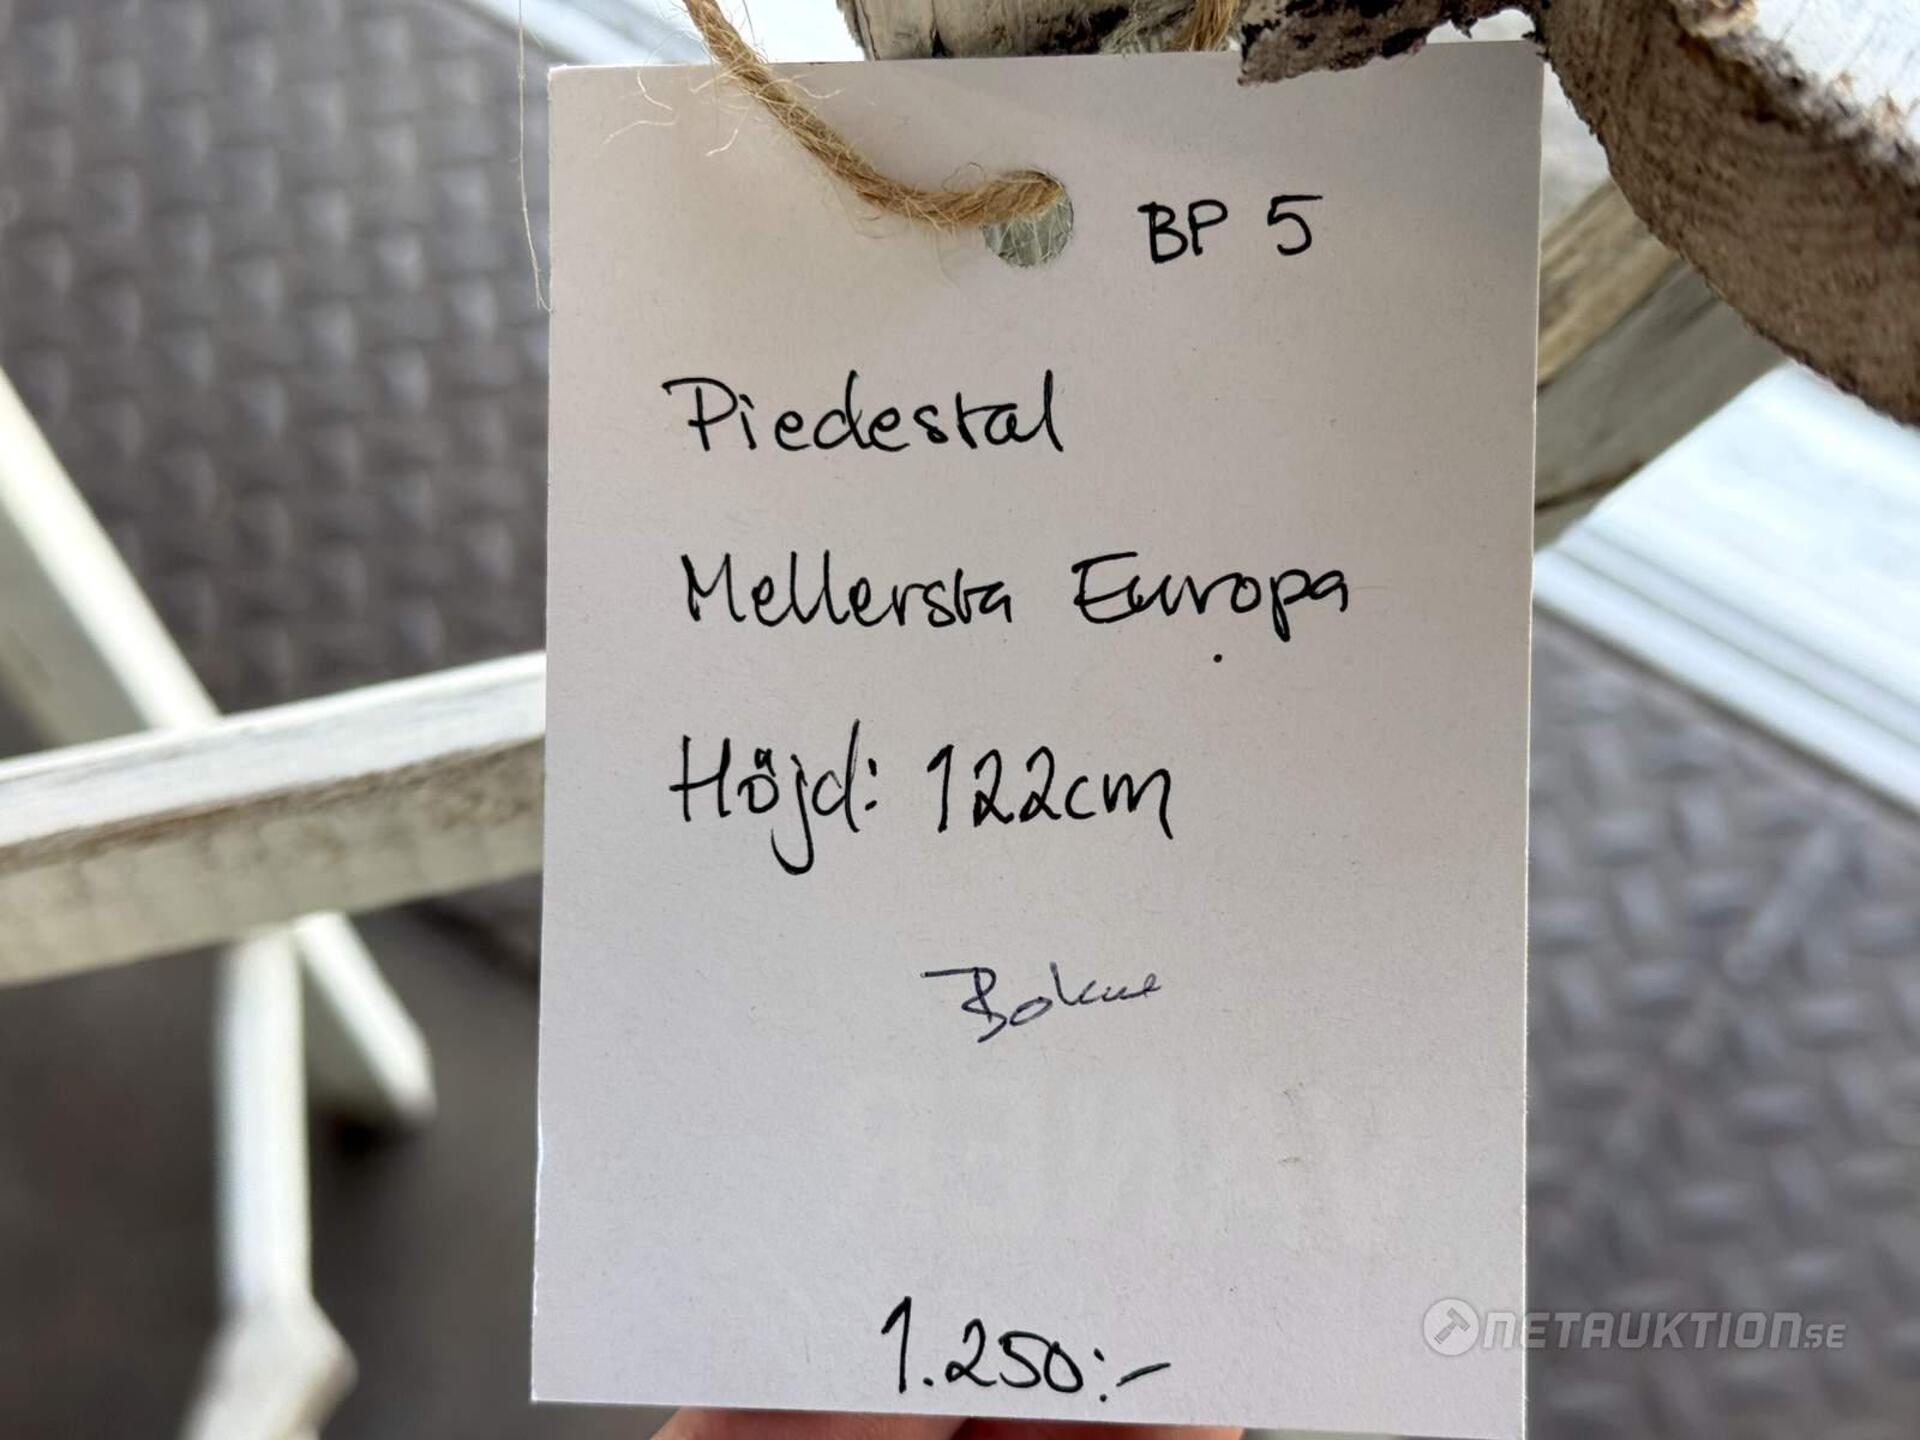 BP 5
Piedestal
Mellersta Europa
Höjd: 122cm
1.250:-
NETAUKTION.SE